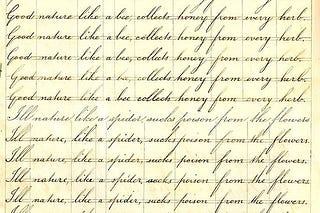 Good nature like a bee, collects honey from every herb.
Good nature like a bee, collects honey from every herb.
Good nature like a bee, collects honey from every herb.
Good nature like a bee, collects honey from every herb.
Good nature like a bee collects honey from every herb.
Ill nature, like a spider, sucks poison from the flowers
Ill nature, like a spider, sucks poison from the flowers.
Ill nature, like a spider, sucks poison from the flowers.
Ill nature, like a spider, sucks poison from the flowers
Ill nature, like a spider, sucks poison from the flowers.